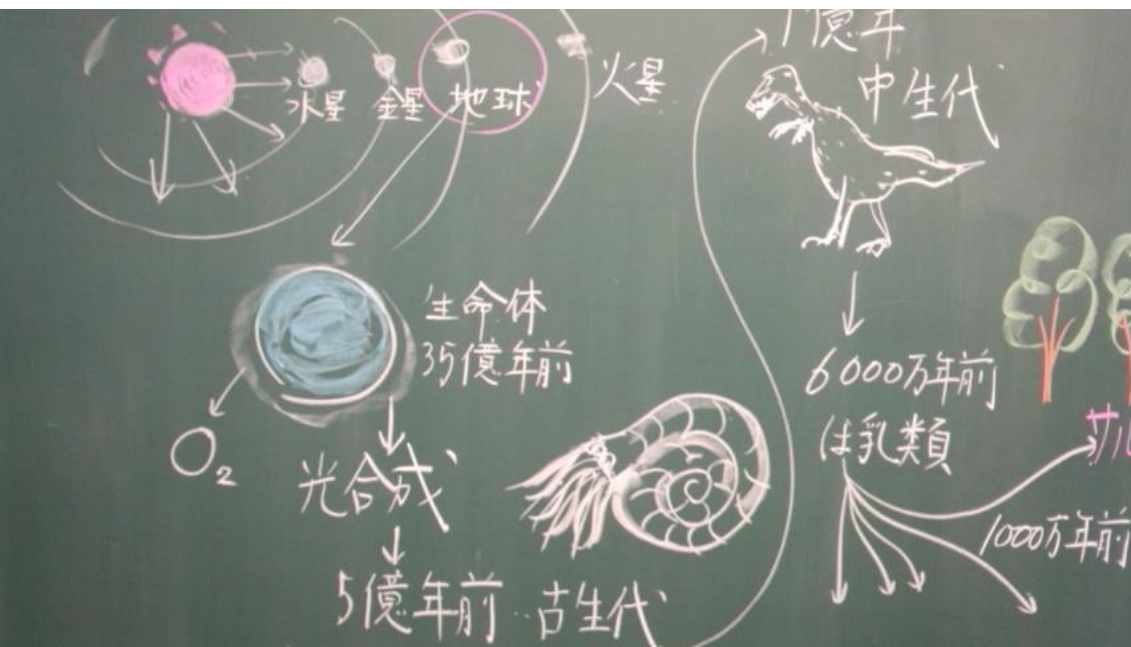 水星
金星
地球
火星
生命体
35億年前
O₂
光合成
5億年前‥古生代
1億年
中生代
6000万年前
は乳類
サル
1000万年前